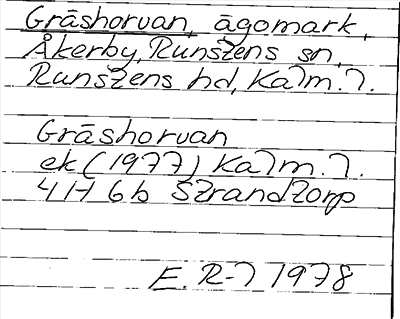 Gråshorvan, ägomark,
Åkerby, Runstens sn,
Runstens hd, Kalm. l.
Gråshorvan
ek (1977) Kalm. l.
4H 6b Strandtorp
E. R-l 1978